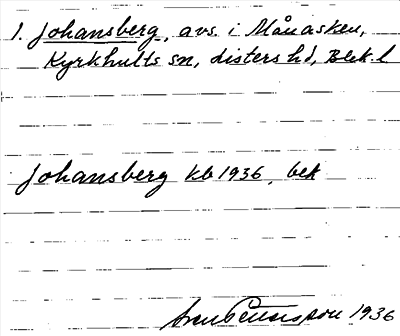 1. Johansberg, avs. i Månasken,
Kyrkhults sn, Listers hd, Blek. l
Johansberg kb 1936, bek
1936